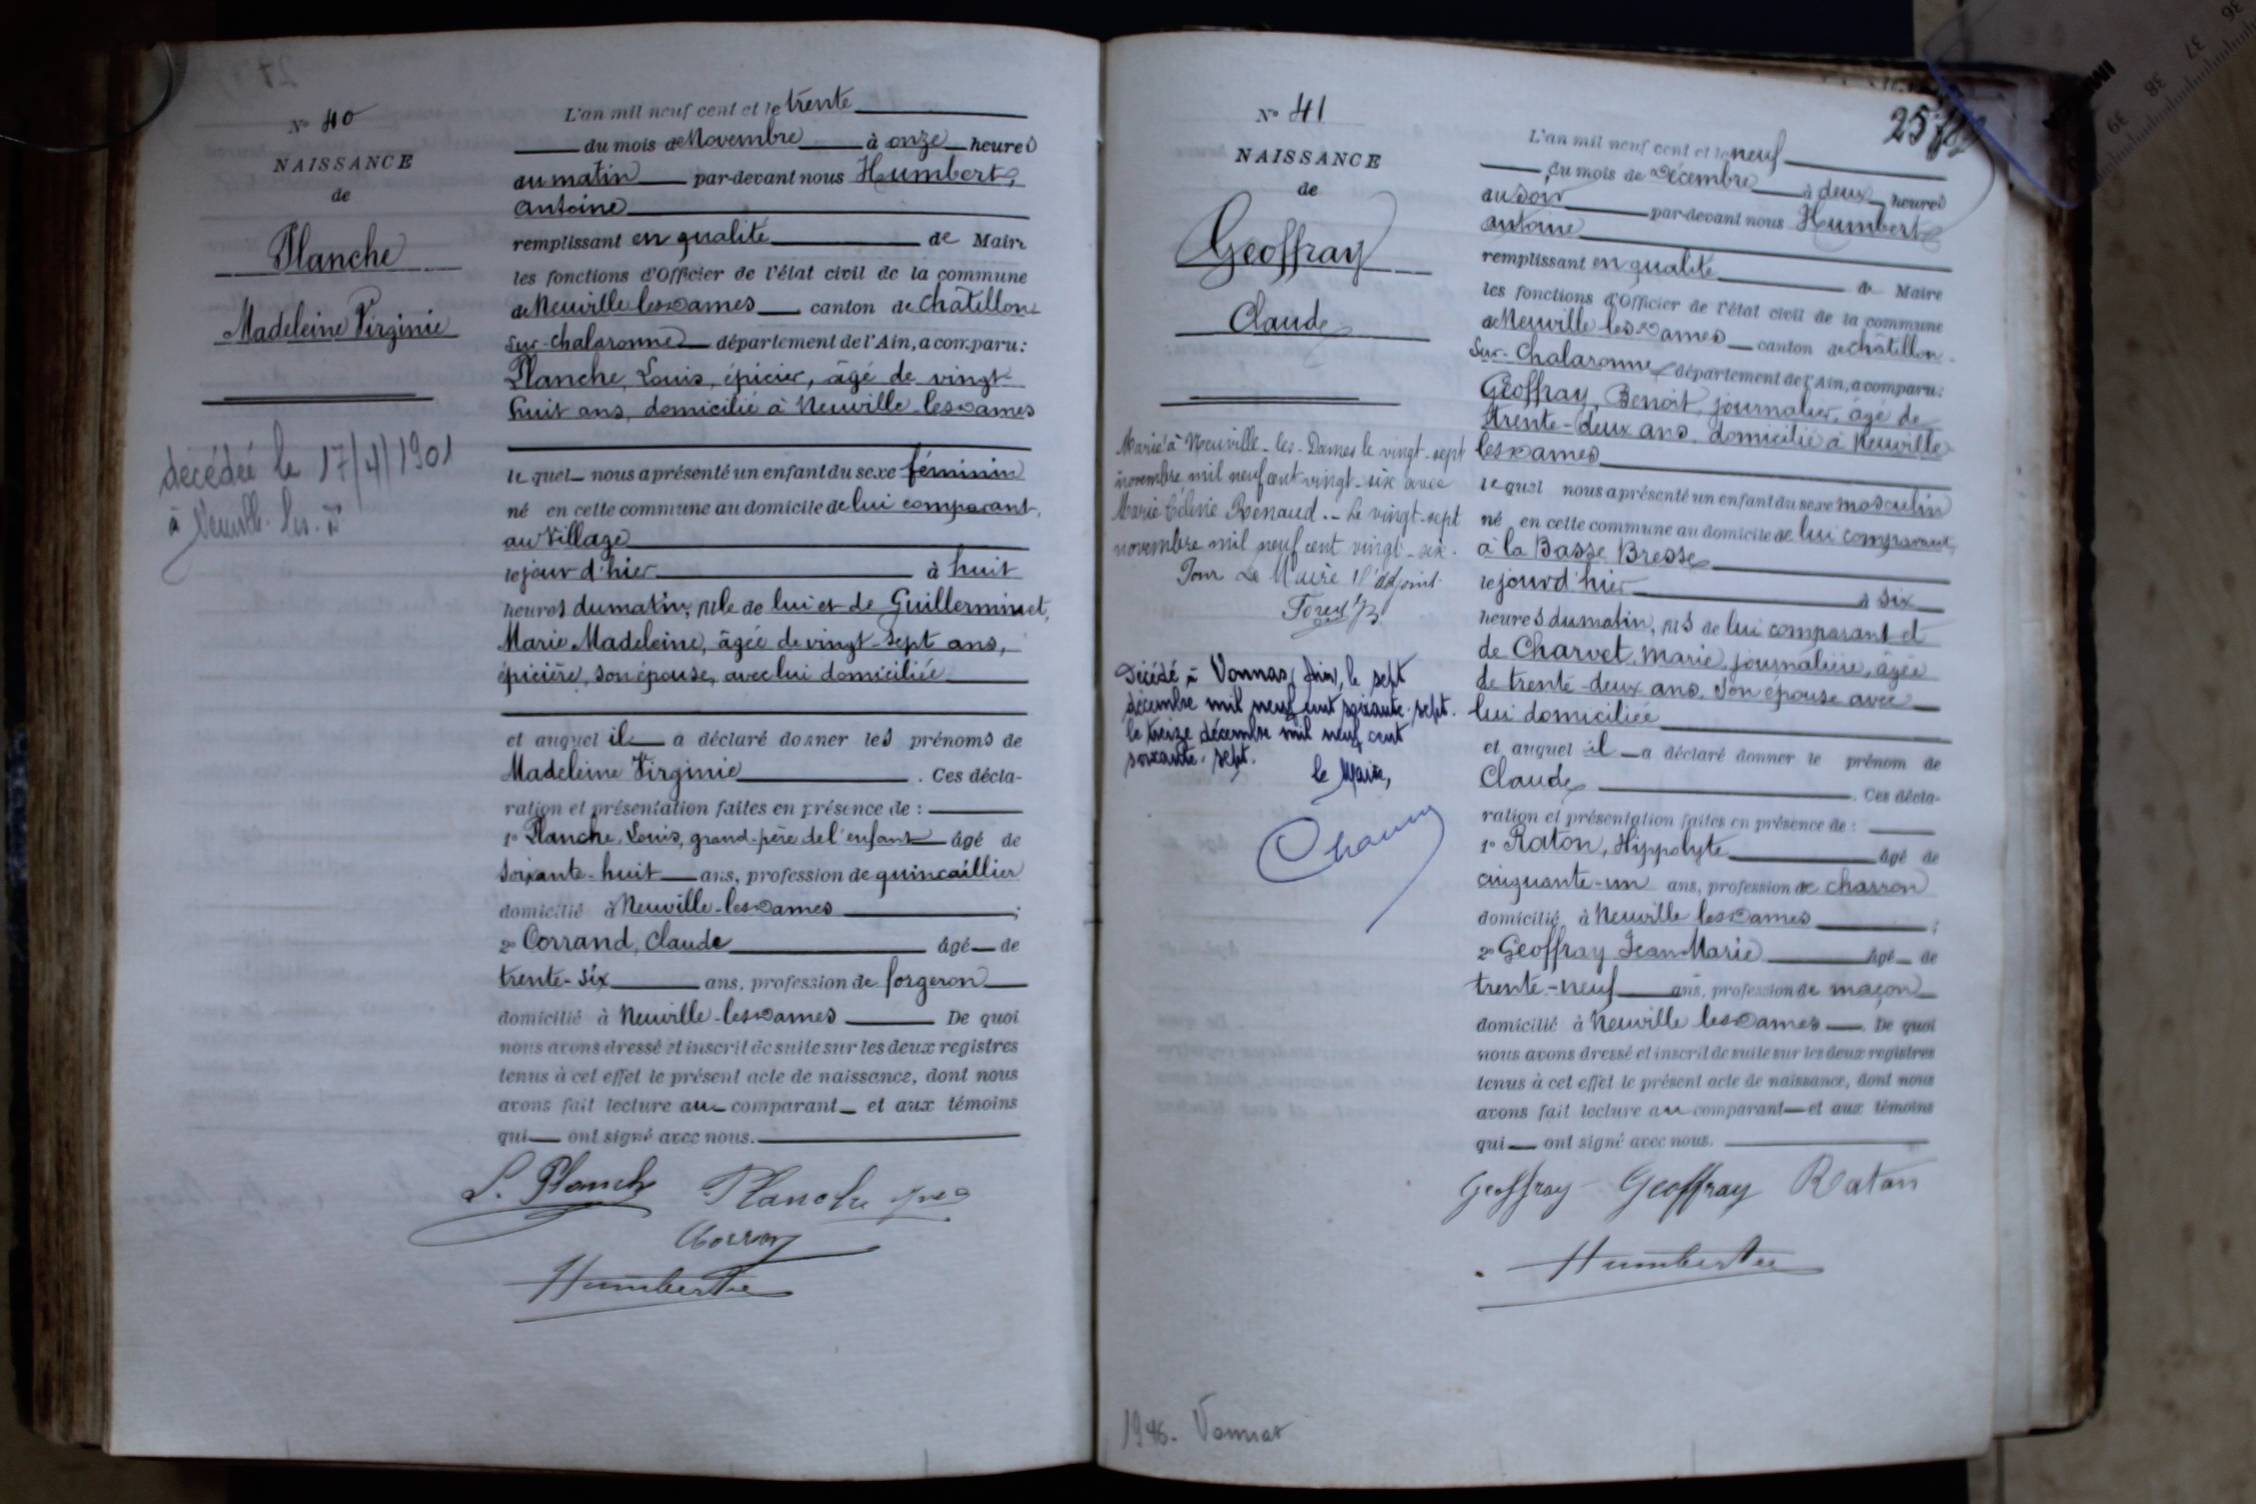 N° 40
NAISSANCE
de
Planche
Madeleine Virginie
décédée le 17/4/1901
à Neuville-les-D
L'an mil neuf cent et le trente
du mois de Novembre à onze heures
du matin par-devant nous Humbert,
Antoine
remplissant en qualité de Maire
les fonctions d'Officier de l'état civil de la commune
de Neuville les Dames canton de Chatillon
sur-Chalaronne département de l'Ain, a comparu:
Planche, Louis, épicier, âgé de vingt-
huit ans, domicilié à Neuville-les-Dames
le quel nous a présenté un enfant du sexe féminin
né en cette commune au domicile de lui comparant,
au Village
le jour d'hier à huit
heures du matin, fille de lui et de Guillerminet,
Marie Madeleine, âgée de vingt-sept ans,
épicière, son épouse, avec lui domiciliée
et auquel il a déclaré donner les prénoms de
Madeleine Virginie . Ces décla-
ration et présentation faites en présence de :
1° Planche, Louis, grand-père de l'enfant âgé de
soixante-huit ans, profession de quincaillier
domicilié à Neuville-les-Dames ;
2° Corrand, Claude âgé de
trente-six ans, profession de forgeron
domicilié à Neuville-les-Dames De quoi
nous avons dressé et inscrit de suite sur les deux registres
tenus à cet effet le présent acte de naissance, dont nous
avons fait lecture au comparant et aux témoins
qui ont signé avec nous.
L. Planche Planche
Humbert
257
N° 41
NAISSANCE
de
Geoffray
Claude
Marié à Neuville-les-Dames le vingt-sept
novembre mil neuf cent vingt-six avec
Marie Célinie Renaud.- Le vingt-sept
novembre mil neuf cent vingt-six.
Pour Le Maire l'adjoint
Décédé à Vonnas (Ain), le sept
décembre mil neuf cent soixante-sept.
le treize décembre mil neuf cent
soixante-sept.
le Maire,
1946. Vonnas
L'an mil neuf cent et le neuf
du mois de Décembre à deux heures
du soir par-devant nous Humbert
Antoine
remplissant en qualité de Maire
les fonctions d'Officier de l'état civil de la commune
de Neuville les Dames canton de Châtillon-
sur-Chalaronne département de l'Ain, a comparu:
Geoffray, Benoit, journalier, âgé de
trente-deux ans, domicilié à Neuville
les Dames
le quel nous a présenté un enfant du sexe masculin
né en cette commune au domicile de lui comparant,
à la Basse Bresse
le jour d'hier à six
heures du matin, fils de lui comparant et
de Charvet, Marie, journalière, âgée
de trente-deux ans, son épouse avec
lui domiciliée
et auquel il a déclaré donner le prénom de
Claude . Ces décla-
ration et présentation faites en présence de :
1° Raton, Hippolyte âgé de
cinquante-un ans, profession de charron
domicilié à Neuville les Dames ;
2° Geoffray Jean-Marie âgé de
trente-neuf ans, profession de maçon
domicilié à Neuville les Dames . De quoi
nous avons dressé et inscrit de suite sur les deux registres
tenus à cet effet le présent acte de naissance, dont nous
avons fait lecture au comparant et aux témoins
qui ont signé avec nous.
Geoffray Geoffray Raton
Humbert
36
37
38
39